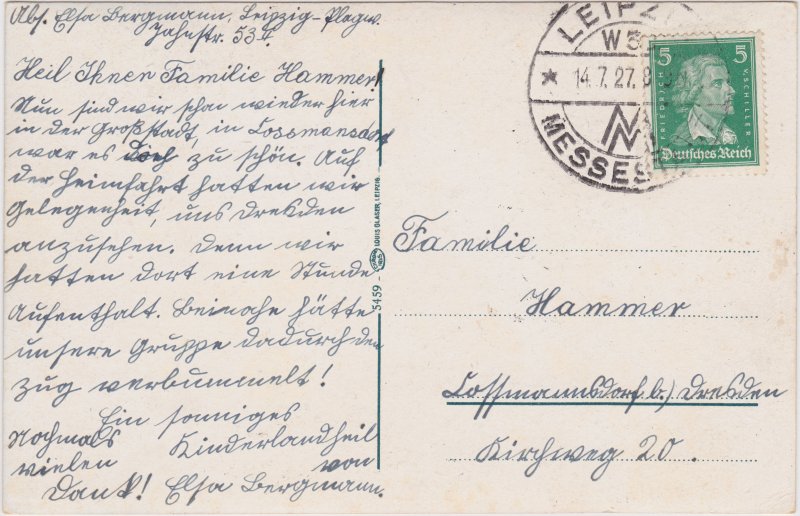 Abs. Elsa Bergmann, Leipzig-Plagw.
Jahnstr. 53 I.
Heil Ihnen Familie Hammer!
Nun sind wir schon wieder hier
in der Großstadt, in Cossmansdorf
war es doch zu schön. Auf
der Heimfahrt hatten wir
Gelegenheit, uns Dresden
anzusehen. Denn wir
hatten dort eine Stunde
Aufenthalt. Beinahe hätte
unsere Gruppe dadurch den
Zug verbummelt!
Ein sonniges
Kinderlandheil
von
Elsa Bergmann.
Nochmals
vielen
Dank!
5459 - LOUIS GLASER, LEIPZIG.
LEIPZI
W3
* 14.7.27. 8
MESSES
5 5
FRIEDRICH V. SCHILLER
Deutsches Reich
Familie
Hammer
Cossmannsdorf b/ Dresden
Kirchweg 20.